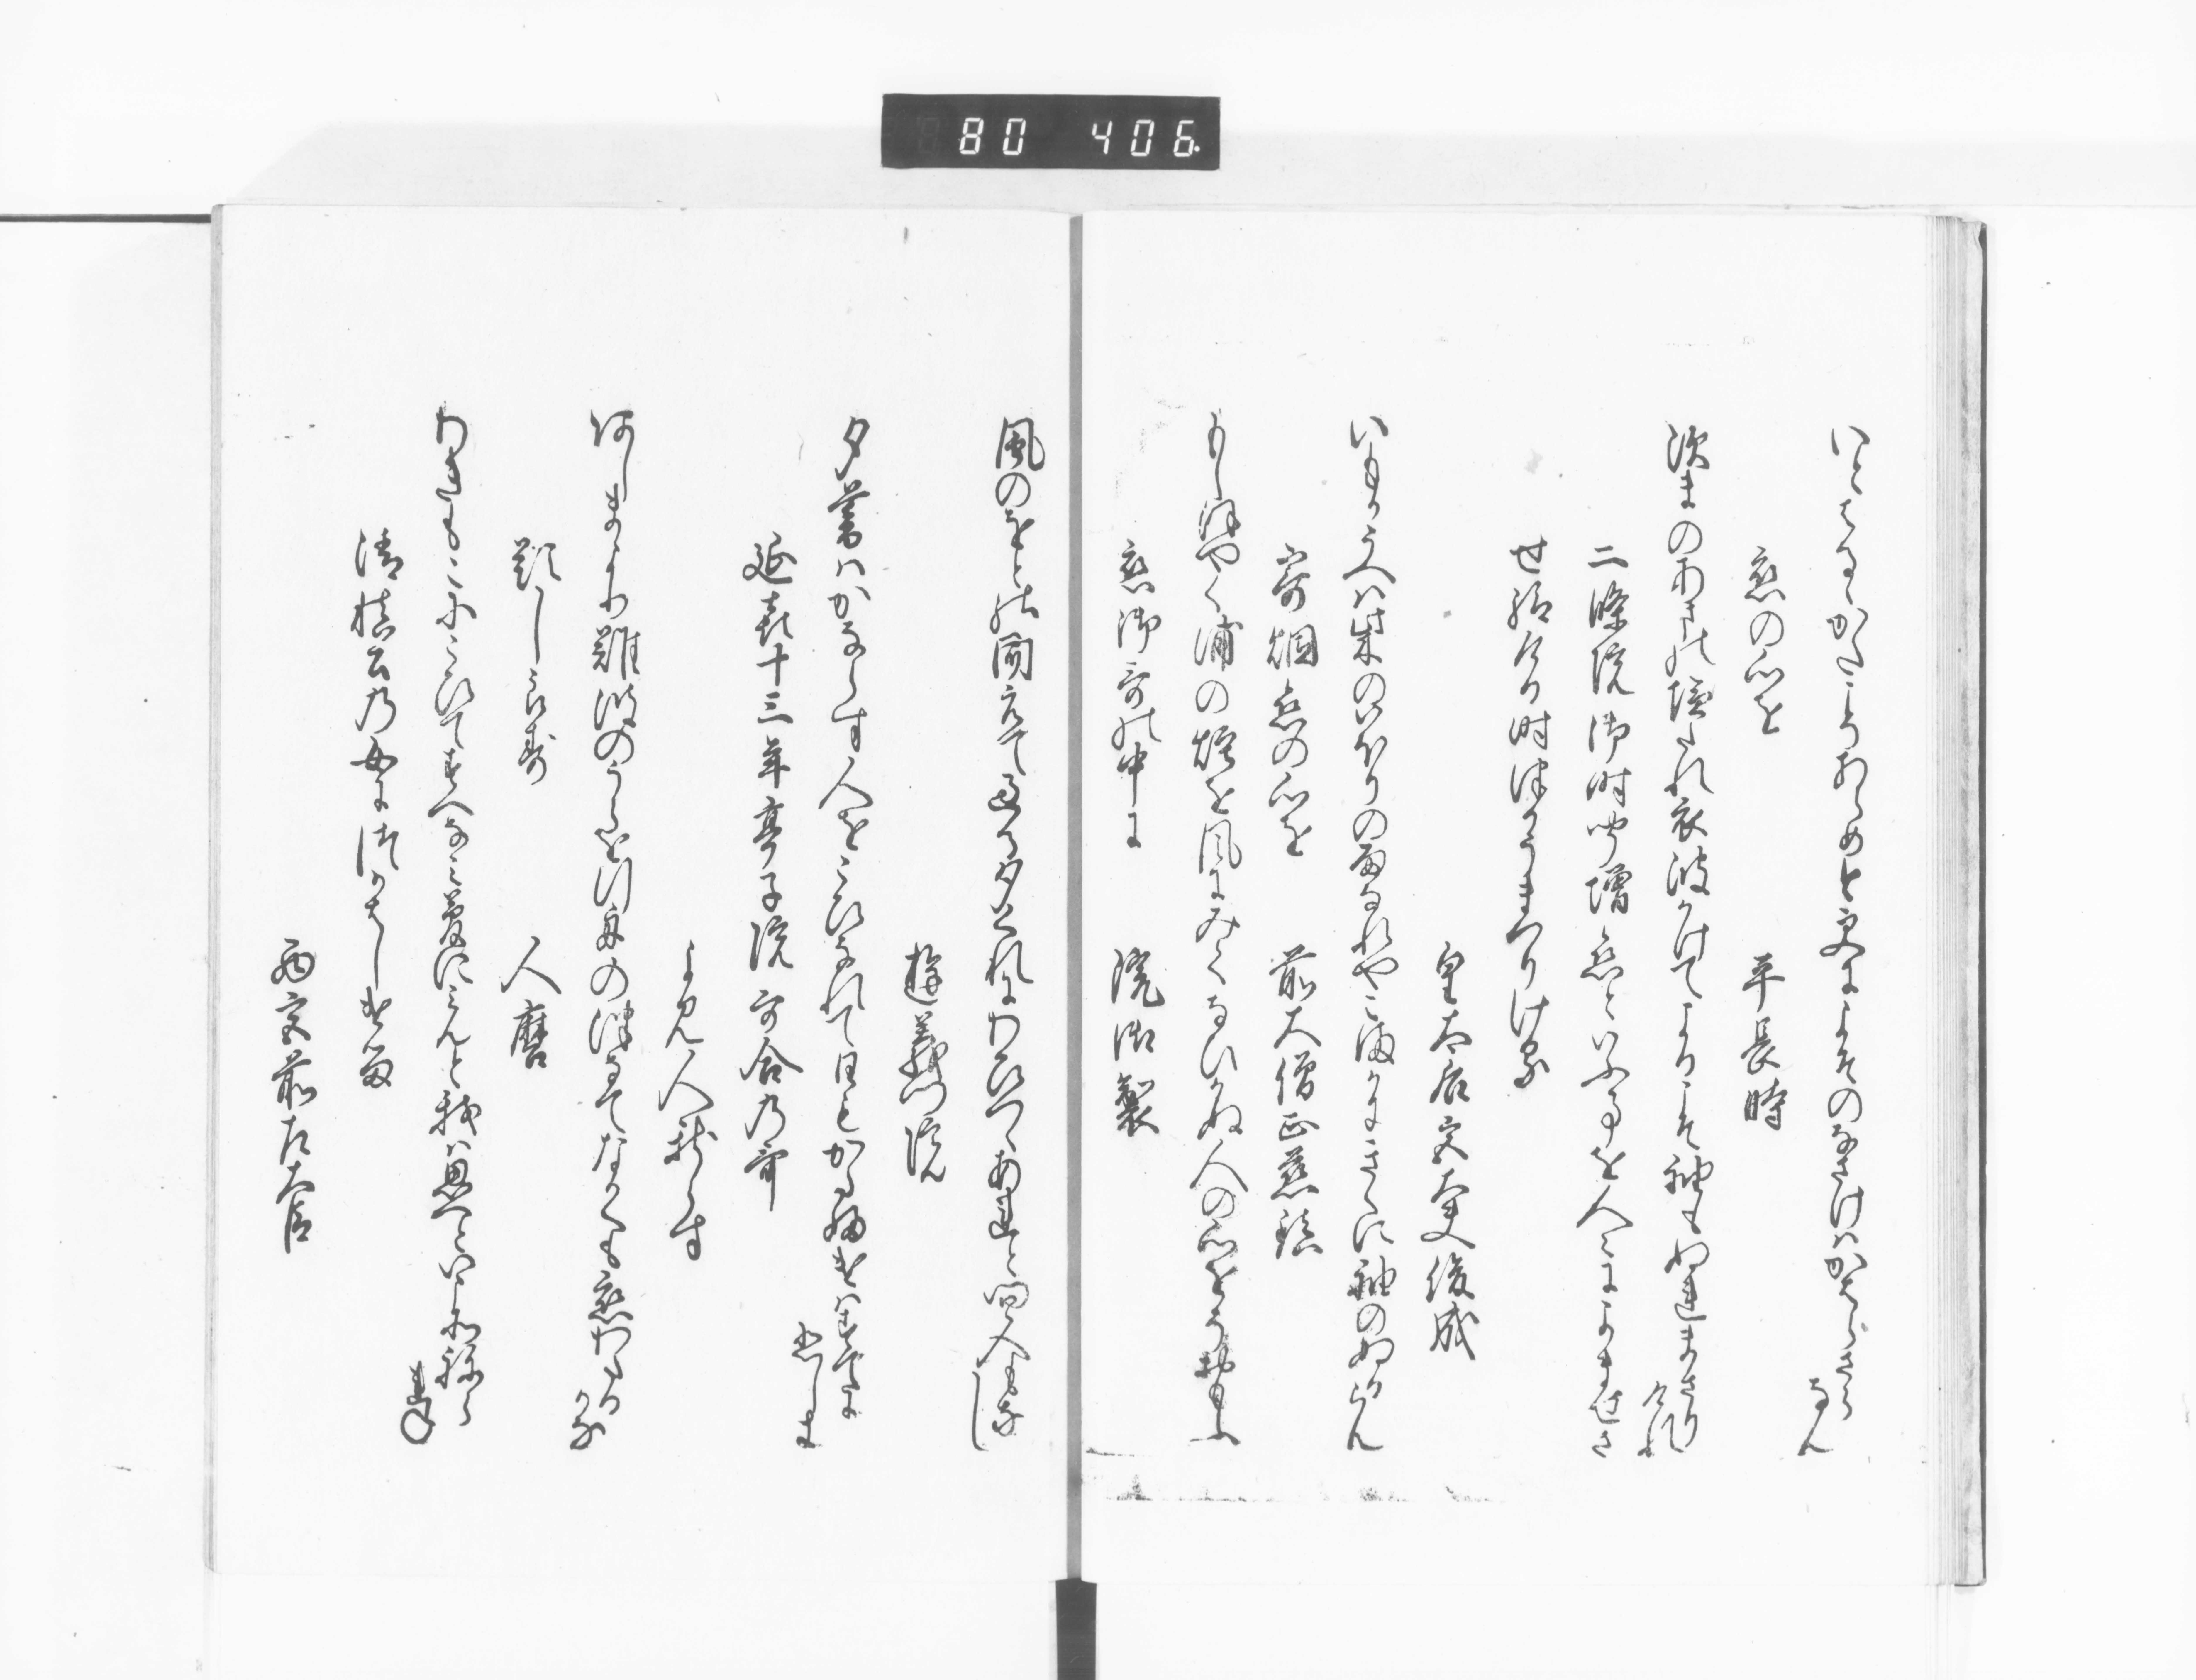 80 406
いとはるゝかたこそあらめと更によそのなさけはかはらさら
なん
恋の心を　平長時
須まのあまの塩たれ衣波かけてよるこそ袖もぬれまさり
けれ
二條院御時増恋といふ事を人々によませさ
せ給ける時つかうまつりける
皇太后宮大夫俊成
いもかうへは柴のいほりの雨なれやこまかきさへに袖のぬるらん
寄烟恋の心を　前大僧正慈鎮
もしほやく浦の煙を風にみてなひかぬ人の心をそ思ふ
恋御哥の中に　院御製
風のをとの聞えて過る夕くれにわひつゝあれと問人もなし
遊義門院
夕暮はかならす人をこひなれて日もかたふけはすてに
かなしき
延喜十三年亭子院哥合の哥
よみ人しらす
何しまより難波のうらに行舟の津なてなかくも恋わたる
かな
題しらす　人麿
わきもこにこひてすへなみ夢にみんと我は思へといこそねられ
ね
清慎公の女につかはしける
西宮前左大臣